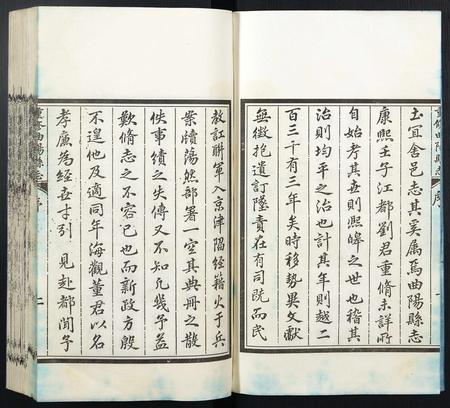 重修曲陽縣志 序
土宜舍邑志其奚属焉曲陽縣志
康熙壬子江都劉君重脩未詳所
自始考其世則熙皞之世也稽其
治則均平之治也計其年則越二
百三十有三年矣時移勢異文獻
無徵抱遺訂墜責在有司既而民
教訌聯軍入京津陷經籍火于兵
案牘蕩然部署一空其典冊之散
佚事績之失傳又不知凡幾予益
歎脩志之不容已也而新政方殷
不遑他及適同年海觀董君以名
孝廉為經世才引 見赴都聞予
重修曲陽縣志 序